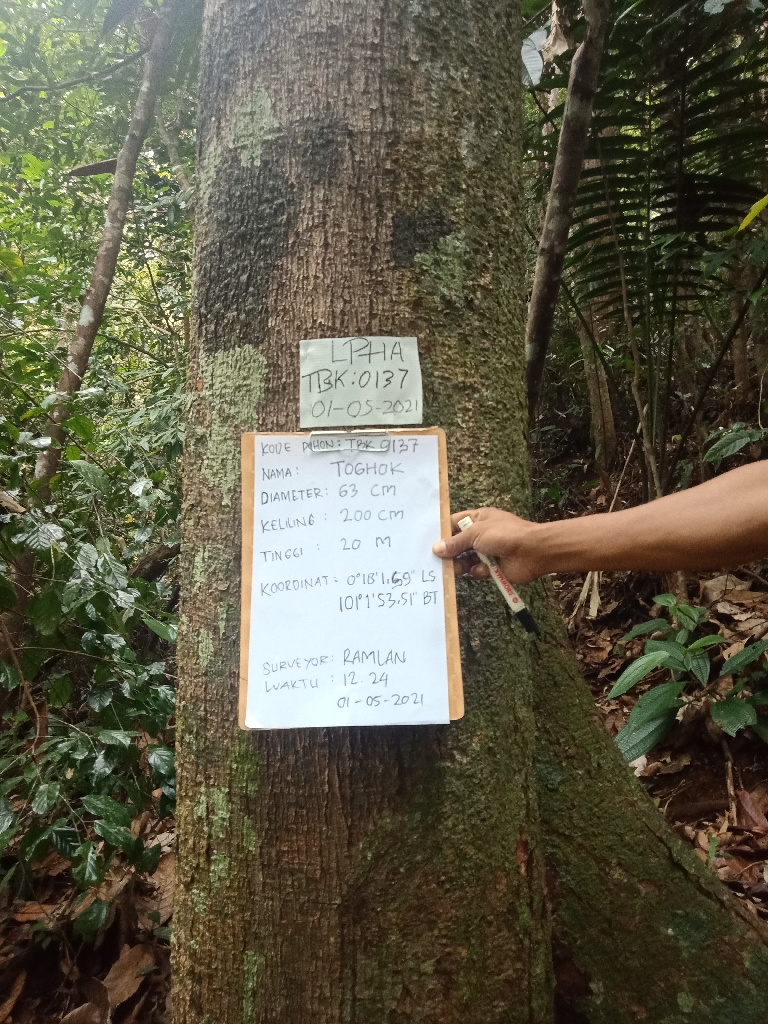 LPHA
TBK:0137
01-05-2021
KODE POHON: TBK 0137
NAMA: TOGHOK
DIAMETER: 63 CM
KELILING: 200 CM
TINGGI : 20 M
KOORDINAT: 0°18'1,69" LS
101°1'53.51" BT
SURVEYOR: RAMLAN
WAKTU : 12.24
01-05-2021